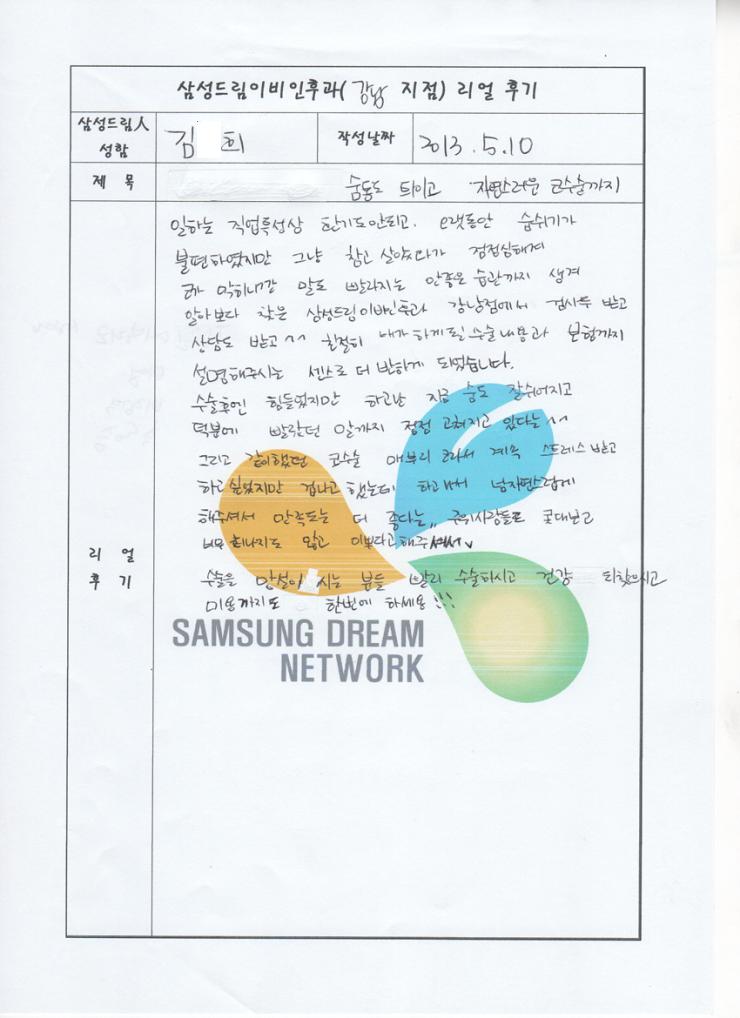 삼성드림이비인후과(강남 지점) 리얼 후기
삼성드림人 성함
김 희
작성날짜
2013.5.10
제 목
숨통도 트이고 자연스러운 코수술까지
리 얼 후 기
일하는 직업특성상 한가도안되고. 오랫동안 숨쉬기가
불편하였지만 그냥 참고 살았다가 점점심해져
코가 막히니깐 말도 빨라지는 안좋은 습관까지 생겨
알아보다 찾은 삼성드림이비인후과 강남점에서 검사두 받고
상담도 받고^^ 친절히 내가하게될 수술내용과 보험까지
설명해주시는 센스로 더 반하게 되었습니다.
수술후엔 힘들었지만 하고난 지금 숨도 잘쉬어지고
덕분에 빨랐던 말까지 점점 고쳐지고 있다는^^
그리고 같이했던 코수술 매부리 코라서 계속 스트레스 받고
하고싶었지만 겁나고 했는데 하고나서 넘자연스럽게
해주셔서 만족도는 더 좋다는,, 주위사람들도
티나지도 않고 이쁘다고해주셔서
수술을 시는 분들 빨리 수술하시고 건강 되찾으시고
미용까지도 한번에 하세용!!!
SAMSUNG DREAM
NETWORK